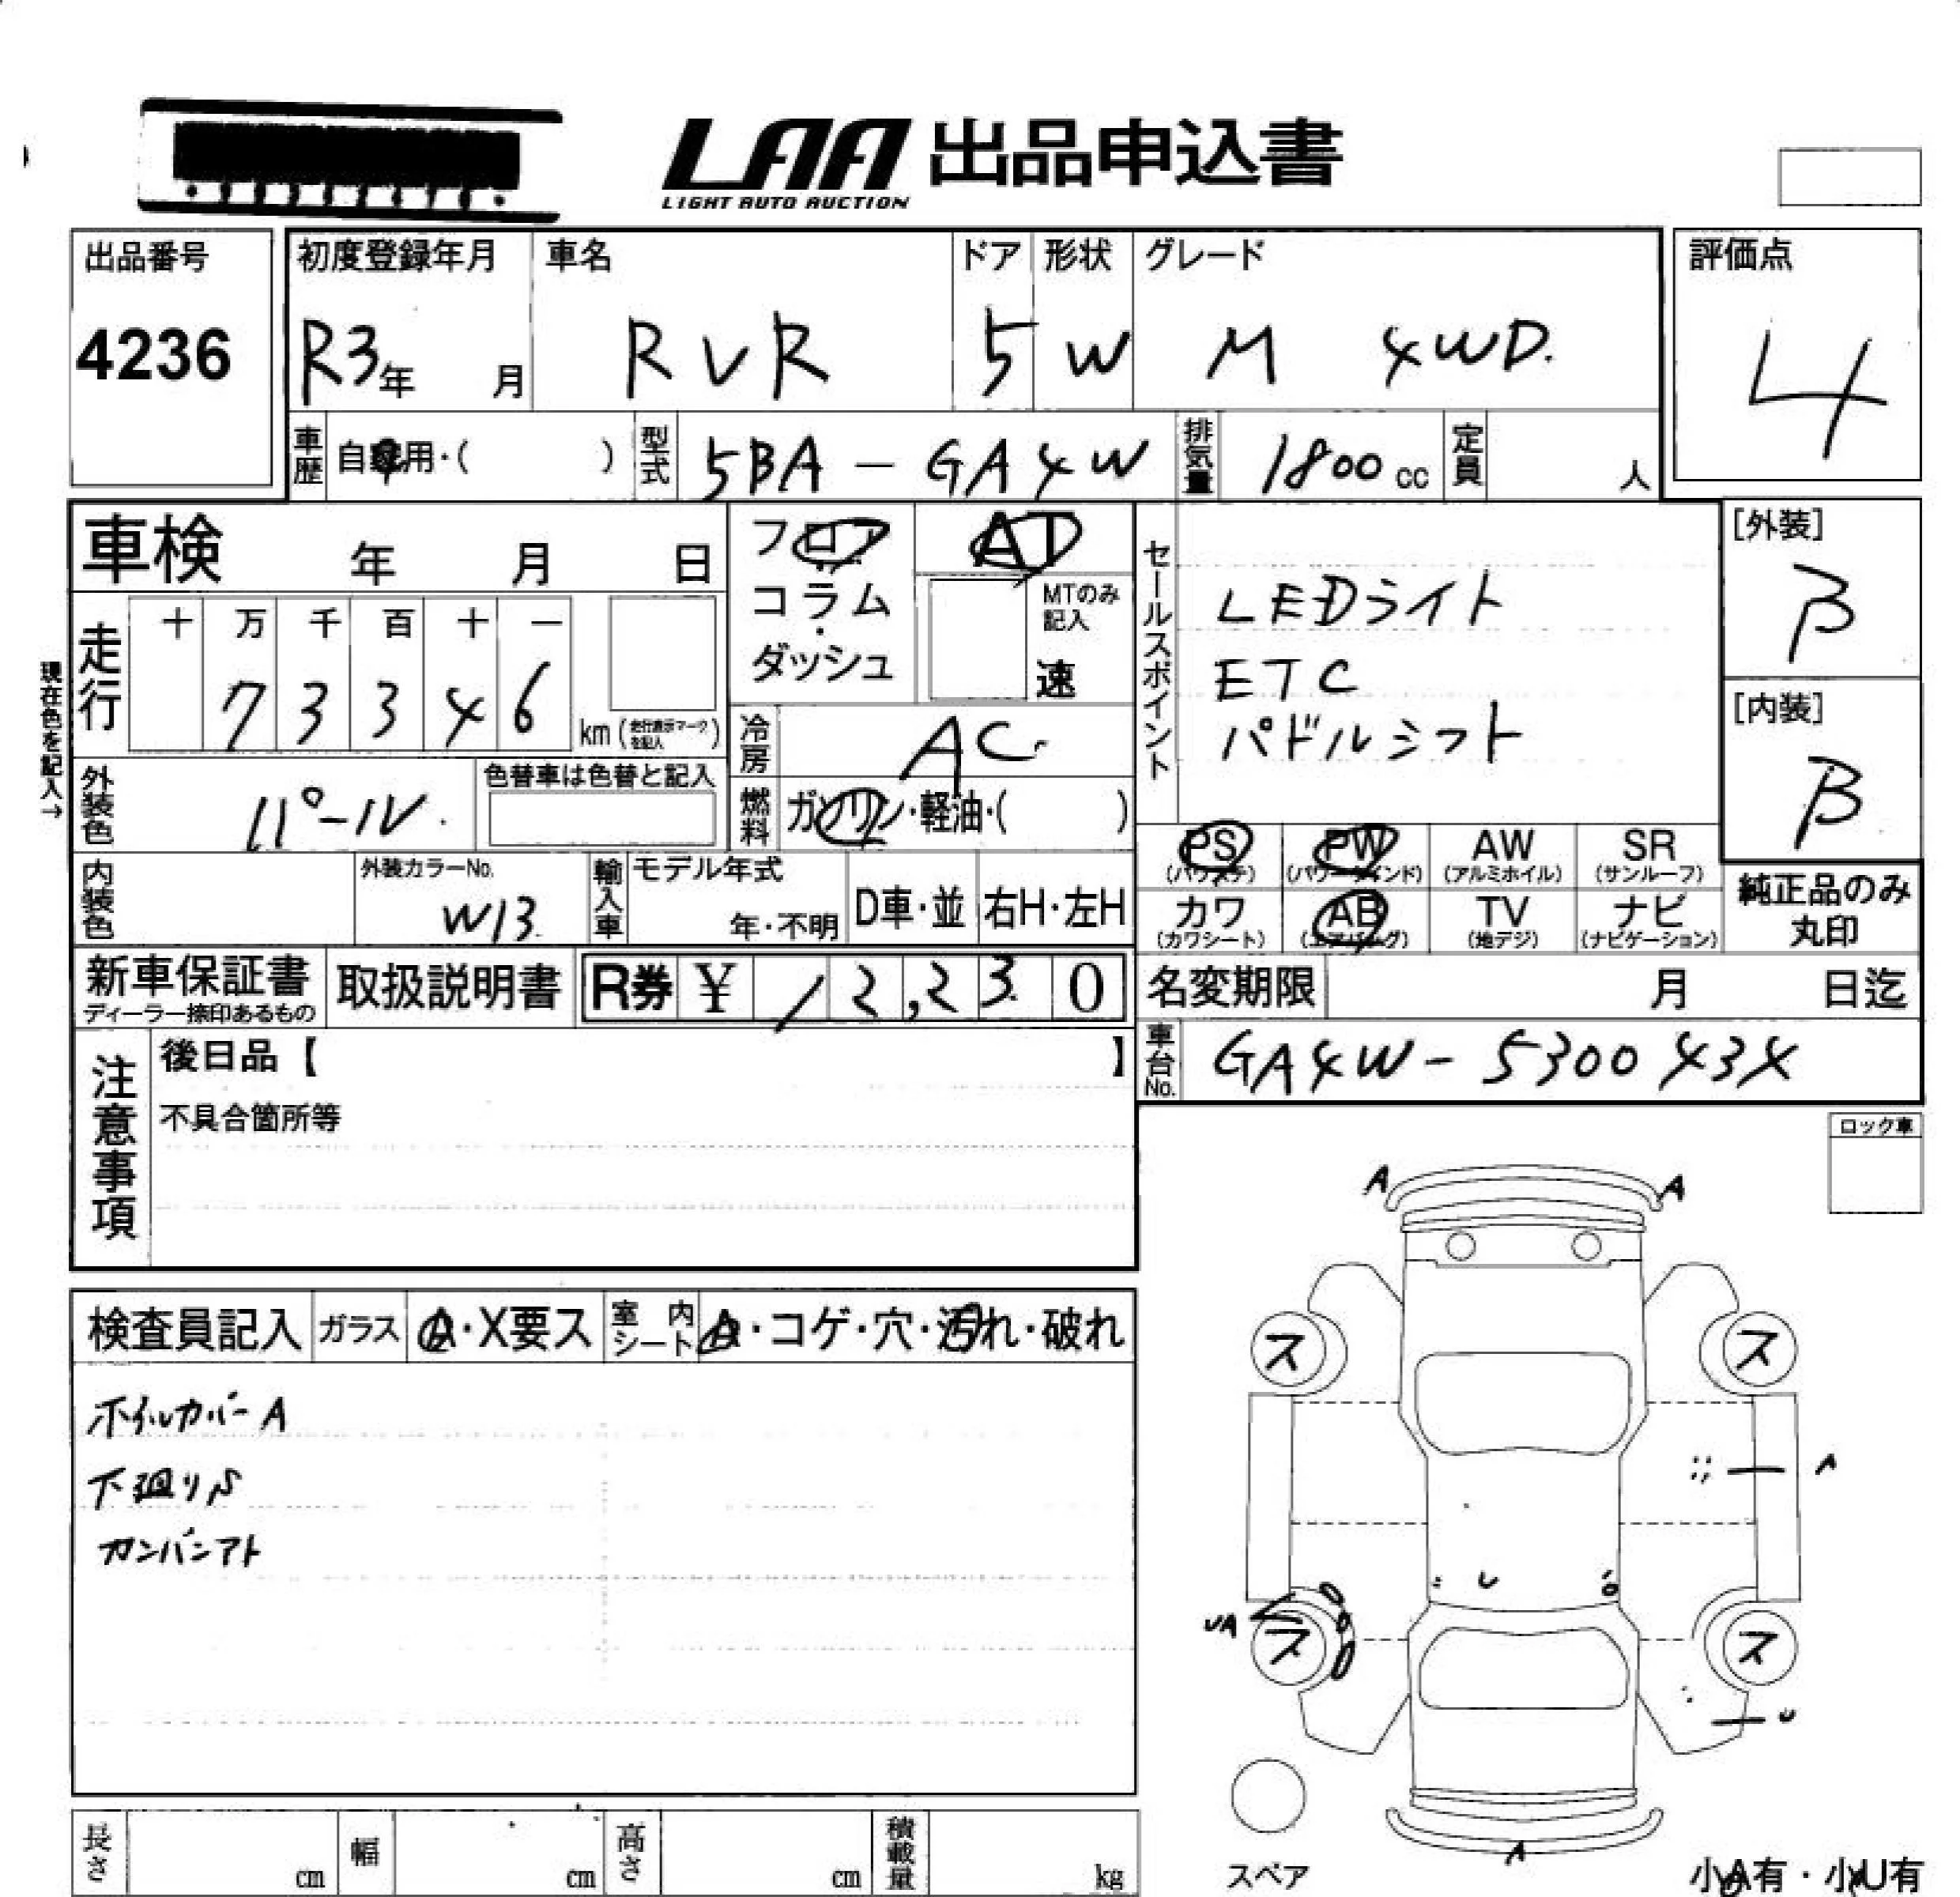 LAA 出品申込書
LIGHT AUTO AUCTION
出品番号
4236
初度登録年月
R3年 月
車名
RVR
ドア
5
形状
W
グレード
M 4WD.
評価点
4
車歴
自家用・( )
型式
5BA - GA4W
排気量
1800cc
定員
人
車検 年 月 日
フロア・コラム・ダッシュ
AT
MTのみ記入
速
セールスポイント
LEDライト
ETC
パドルシフト
[外装]
B
[内装]
B
現在色を記入→
走行
十 万 千 百 十 一
7 3 3 4 6
km (走行表示マークを記入)
冷房
AC
外装色
パール.
色替車は色替と記入
燃料
ガソリン・軽油・( )
PS (パワステ)
PW (パワーウインド)
AW (アルミホイル)
SR (サンルーフ)
カワ (カワシート)
AB (エアバッグ)
TV (地デジ)
ナビ (ナビゲーション)
純正品のみ
丸印
内装色
外装カラーNo.
W13
輸入車
モデル年式
年・不明
D車・並
右H・左H
新車保証書
ディーラー捺印あるもの
取扱説明書
R券 ¥ 12,230
名変期限 月 日迄
車台No.
GA4W - 530043X
注意事項
後日品【 】
不具合箇所等
ロック車
検査員記入
ガラス
A・X要ス
室内シート
A・コゲ・穴・汚れ・破れ
ホイルカバーA
下廻りS
カンバンアト
A
A
ス
ス
A
U
UA
ス
ス
U
A
スペア
小A有・小U有
長さ cm
幅 cm
高さ cm
積載量 kg